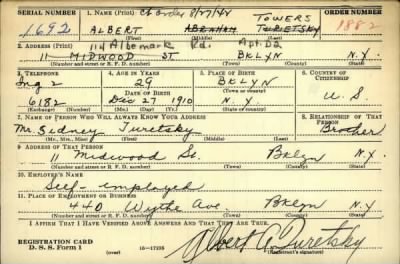 SERIAL NUMBER 1. NAME (Print) Ct Order 8/27/42 TOWERS ORDER NUMBER
1692 ALBERT ABRAHAM TURETSKY 1882
(First) (Middle) (Last)
2. ADDRESS (Print) 114 Albemarle Rd. Apt. D2
11 MIDWOOD ST BKLYN N.Y.
(Number and street or R. F. D. number) (Town) (County) (State)
3. TELEPHONE 4. AGE IN YEARS 5. PLACE OF BIRTH 6. COUNTRY OF CITIZENSHIP
Ing 2 29 BKLYN
DATE OF BIRTH (Town or county) U.S.
6182 Dec 27 1910 N.Y.
(Exchange) (Number) (Mo.) (Day) (Yr.) (State or country)
7. NAME OF PERSON WHO WILL ALWAYS KNOW YOUR ADDRESS 8. RELATIONSHIP OF THAT PERSON
Mr. Sidney Turetsky Brother
(Mr., Mrs., Miss) (First) (Middle) (Last)
9. ADDRESS OF THAT PERSON
11 Midwood St. Bklyn N.Y.
(Number and street or R. F. D. number) (Town) (County) (State)
10. EMPLOYER'S NAME
Self-employed
11. PLACE OF EMPLOYMENT OR BUSINESS
440 Wythe Ave. Bklyn N.Y.
(Number and street or R. F. D. number) (Town) (County) (State)
I AFFIRM THAT I HAVE VERIFIED ABOVE ANSWERS AND THAT THEY ARE TRUE.
REGISTRATION CARD
D. S. S. Form 1 16—17105 Albert A. Turetsky
(Registrant's signature)